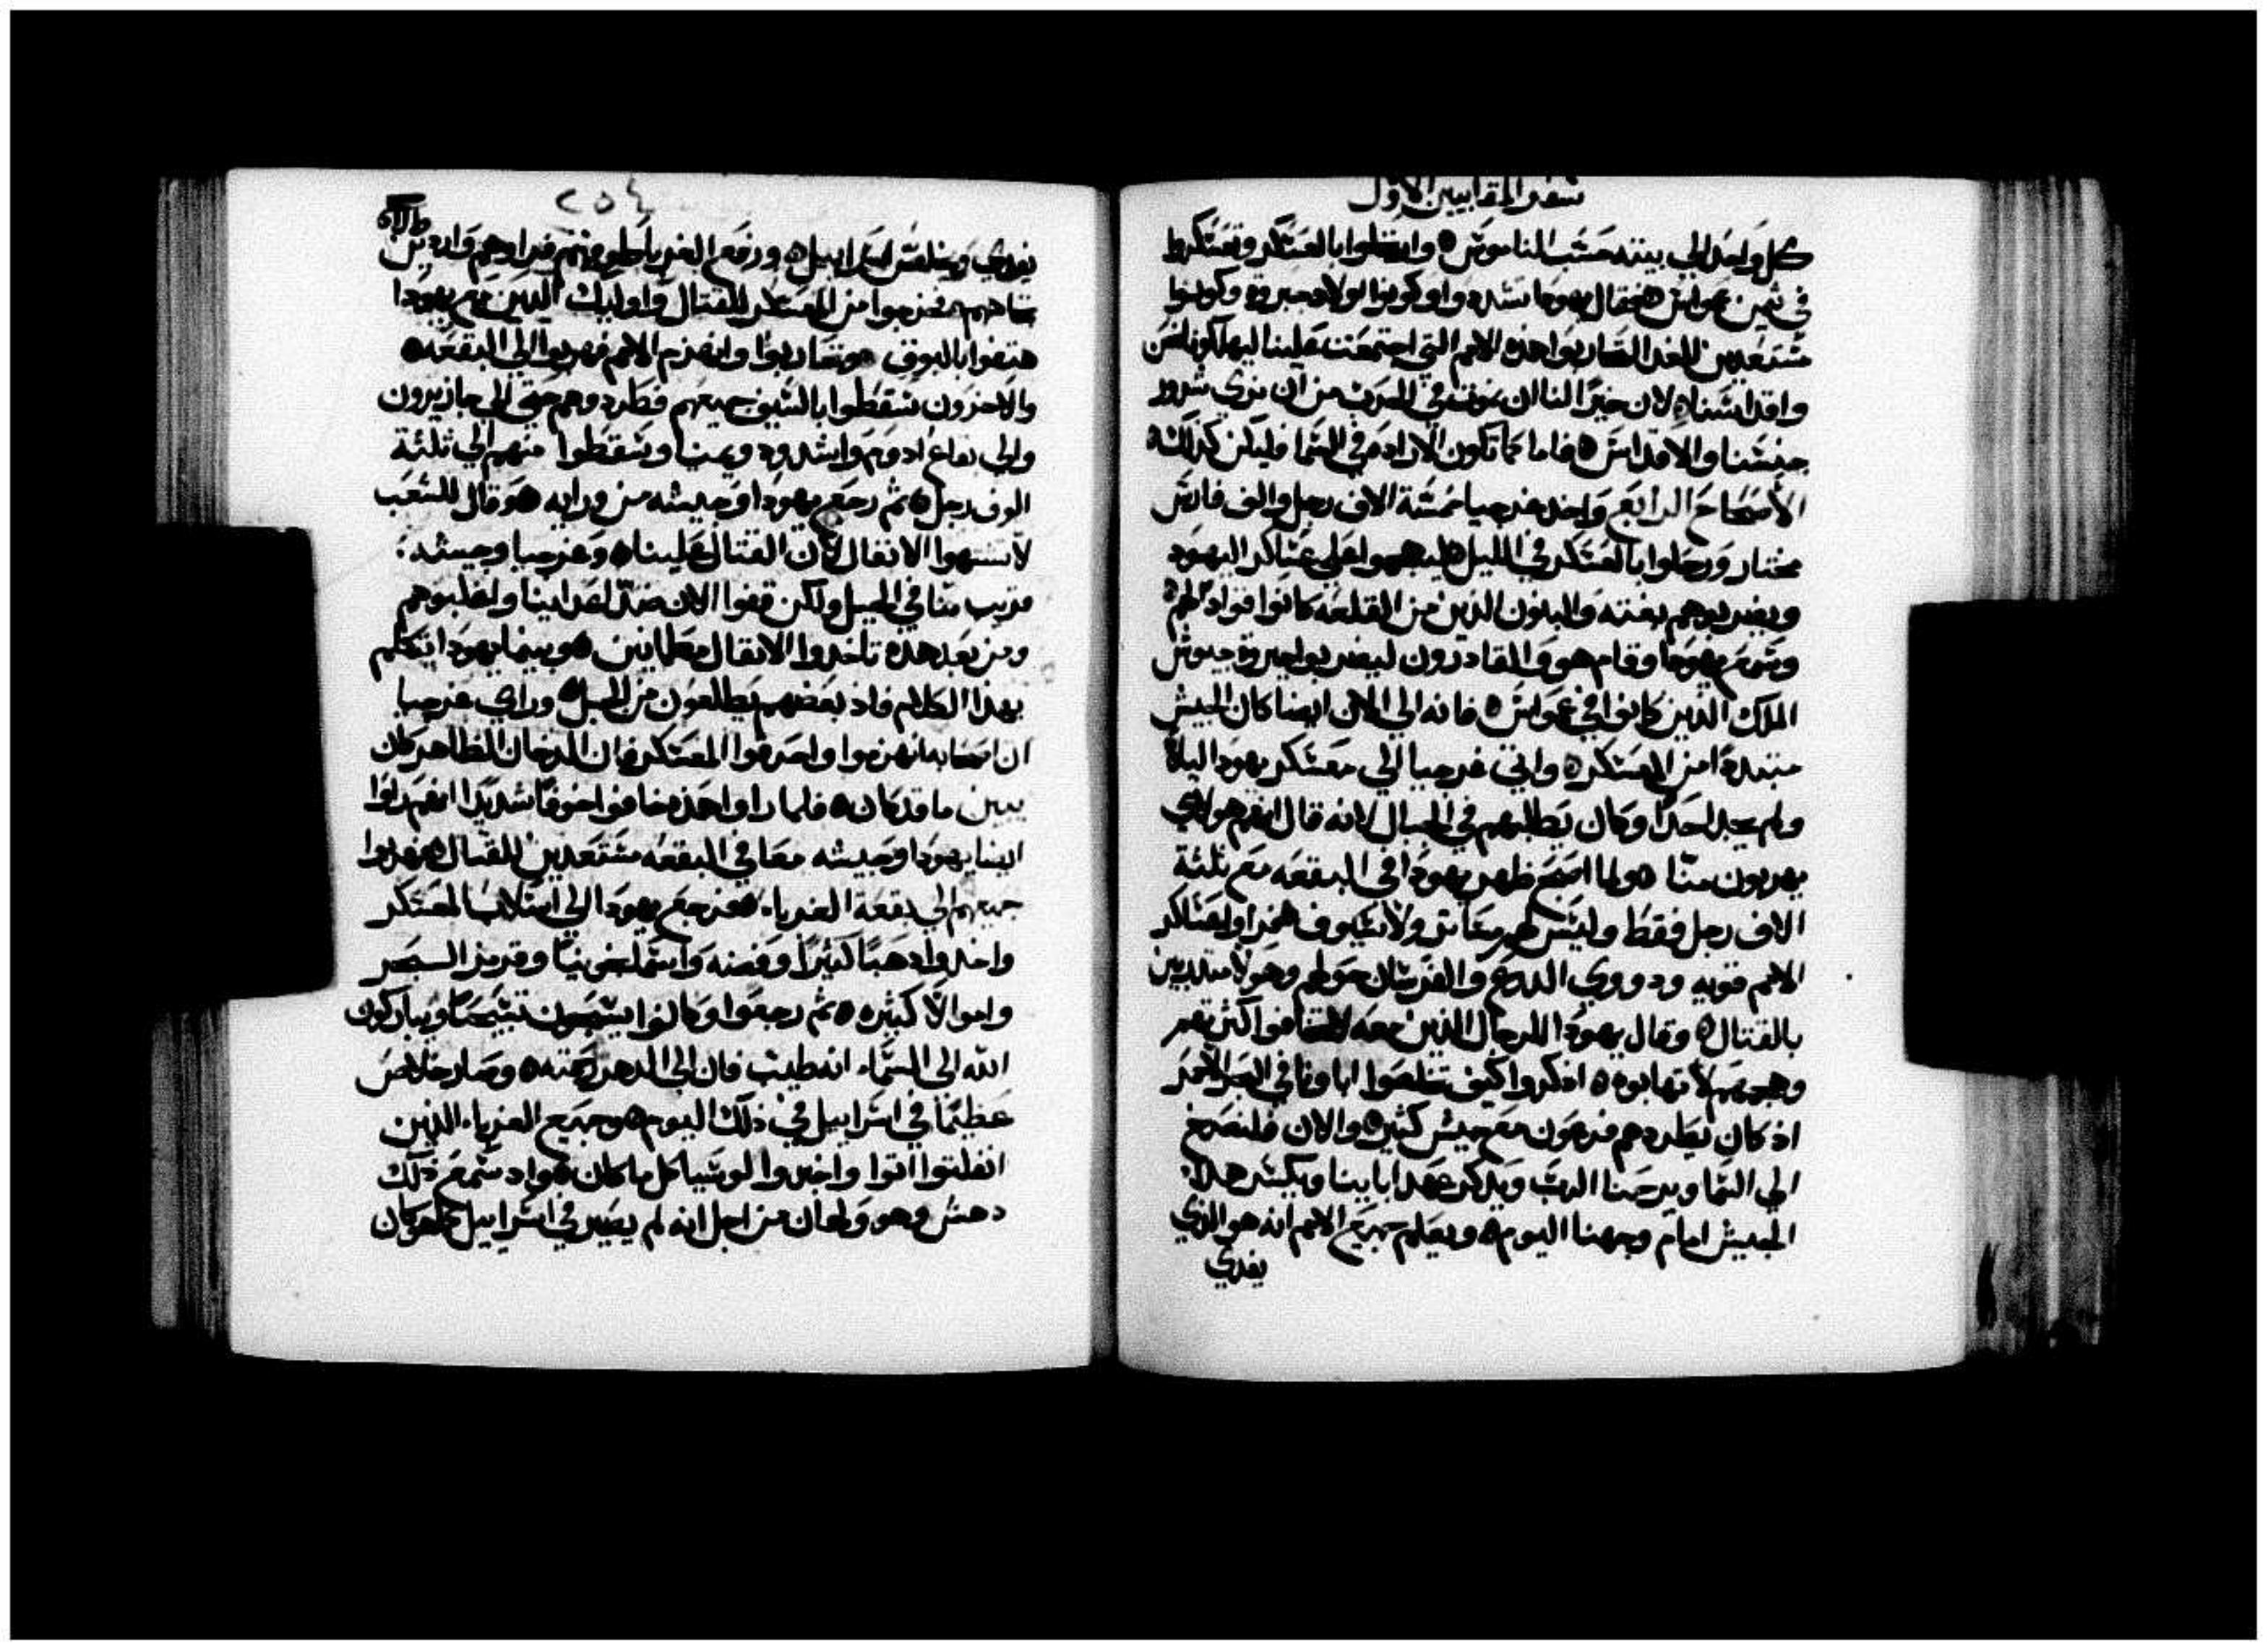 سفر المقابيين الاول
كل واحد الي بيته حسب الناموس ه وانتقلوا بالعسكر وتعسكروا
في تيمن عمواس ه فقال يهودا تشددوا وكونوا اولاد جبروة وكونوا
مستعدين للغد لتحاربوا هذه الامم التي اجتمعت علينا ليهلكونا نحن
واقداسنا ه لان خيرًا لنا ان نموت في الحرب من ان نري شرور
جنسنا والاقداس ه فاما كما تكون الارادة في السما فليكن كذلك ه
الأصحاح الرابع واخذ غرجيا خمسة الاف رجل والف فارس
مختار ورحلوا بالعسكر في الليل ه ليهجموا علي عساكر اليهود
ويضربوهم بغتة والبنون الذين من القلعه كانوا قوادًا لهم ه
وسمع يهودا وقام هو والقادرون ليضربوا جبروة جيوش
الملك الذين كانوا في عمواس ه فانه الي الان ايضا كان الجيش
متبددًا من المعسكر ه واتي غرجيا الي معسكر يهودا ليلاً
ولم يجد احدًا وكان يطلبهم في الجبال لانه قال انهم هولاي
يهربون منّا ه ولما اصبح ظهر يهودا في البقعه مع ثلثة
الاف رجل فقط وليس لهم متاتر ولا سيوف ه فراوا عساكر
الامم قويه وذووي الدروع والفرسان حولهم وهولا متدربين
بالقتال ه وقال يهودا للرجال الذين معه لا تخافوا كثرتهم
وهجومهم لا تهابوه ه اذكروا كيف تخلصوا اباونا في البحر الأحمر
اذ كان يطردهم فرعون مع جيش كثير ه والان فلنصرخ
الي السما ويرحمنا الرب ويذكر عهد ابايينا ويكسر هذا
الجيش امام وجهنا اليوم ه ويعلم جميع الامم انه هو الذي
يفدي
٢٥٤
يفدي ويخلص اسراييل ه ورفع الغربا طرفهم فراوهم واردين
تجاههم ه فخرجوا من المعسكر للقتال واوليك الذين مع يهودا
هتفوا بالبوق ه وتحاربوا وانهزم الامم فهربوا الي البقعه ه
والاخرون سقطوا بالسيف جميعهم فطردوهم حتي الي جازيرون
والي بقاع ادوم واشدود ويمنيا وسقطوا منهم الي ثلثة
الوف رجل ه ثم رجع يهودا وجيشه من ورايه ه وقال للشعب
لا تشتهوا الانفال لأن القتال علينا ه وغرجيا وجيشه
قريب منّا في الجبل ولكن قفوا الان ضدّ اعداينا واغلبوهم
ومن بعد هذه تاخذوا الانفال مطمانين ه وبينما يهودا يتكلم
بهذا الكلام فاذ بعضهم يطلعون من الجبل ه وراي غرجيا
ان اصحابه انهزموا واحرقوا المعسكر فان الدخان الظاهر كان
يبين ما قد كان ه فلما راوا هذه خافوا خوفًا شديدًا انهم راوا
ايضا يهودا وجيشه معا في البقعه مستعدين للقتال ه فهربوا
جميعهم الي بقعة الغربا ه فرجع يهودا الي استلاب المعسكر
واخذوا ذهبًا كثيرًا وفضه واسمانجونيًا وقرمز البحر
واموالاً كثيره ه ثم رجعوا وكانوا يسبحون تسبيحًا ويباركون
الله الي السماء انه طيب فان الي الدهر رحمته ه وصار خلاص
عظيمًا في اسراييل في ذلك اليوم ه وجميع الغرباء الذين
انفلتوا اتوا واخبروا لوسيا كل ما كان ه واذ سمع ذلك
دهش وهو ولهان من اجل انه لم يصير في اسراييل كما هو كان